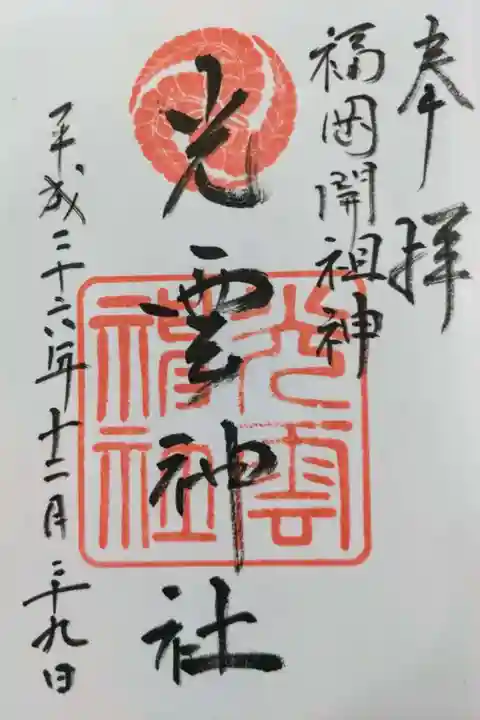 奉拝
福岡開祖神
光雲神社
光雲
神社
平成二十六年十二月二十九日